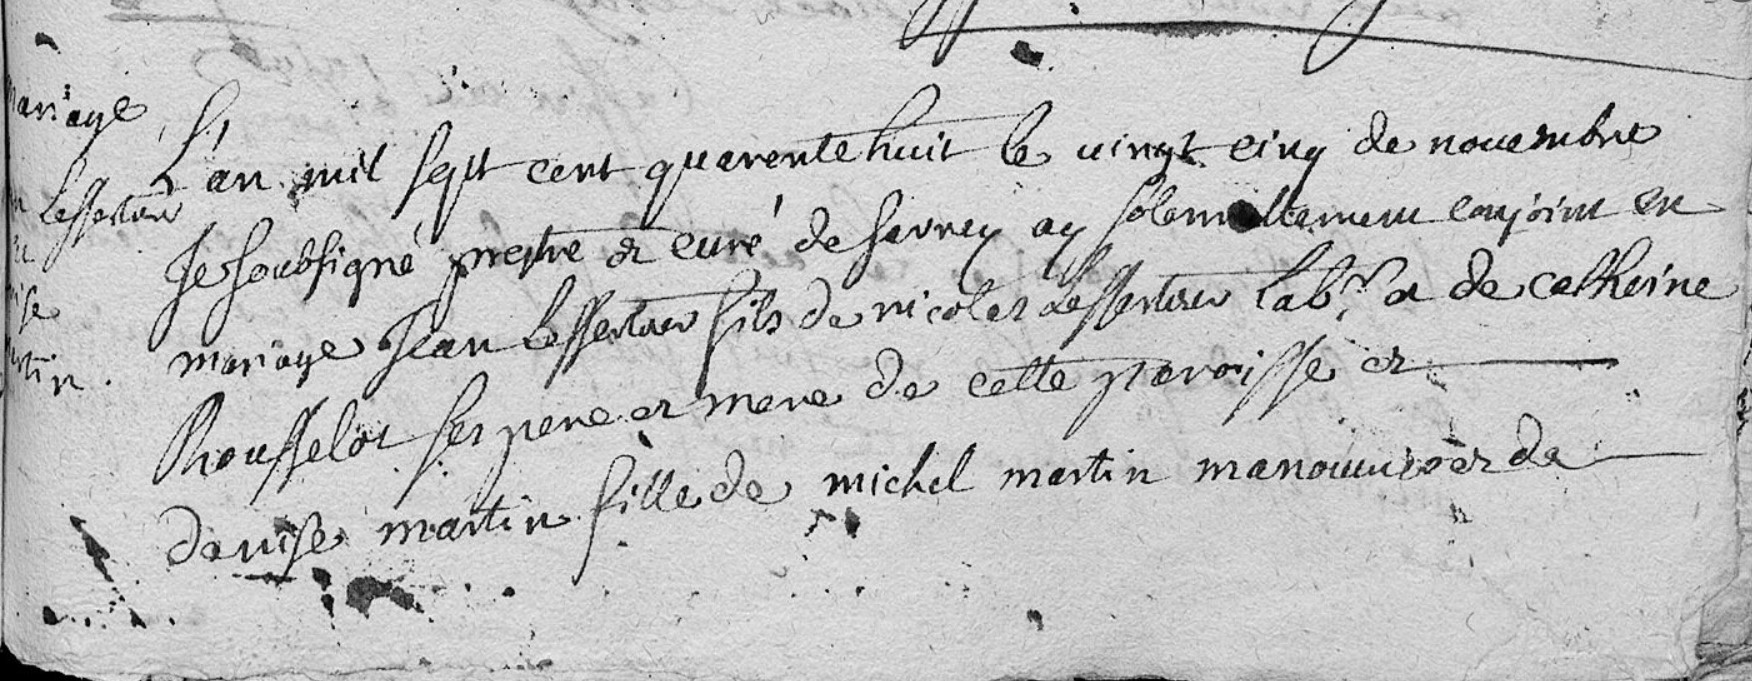 mariage
Lesserteur
tin.
L'an mil sept cent quarente huit le vingt cinq de nouembre
Je soubsigné prestre et curé de sarrey ay solemnellement conjoint en
mariage Jean Lesserteur fils de nicolas Lesserteur lab.r et de catherine
Rousselot ses pere et mere de cette paroisse et
denise martin fille de michel martin manouurier et de